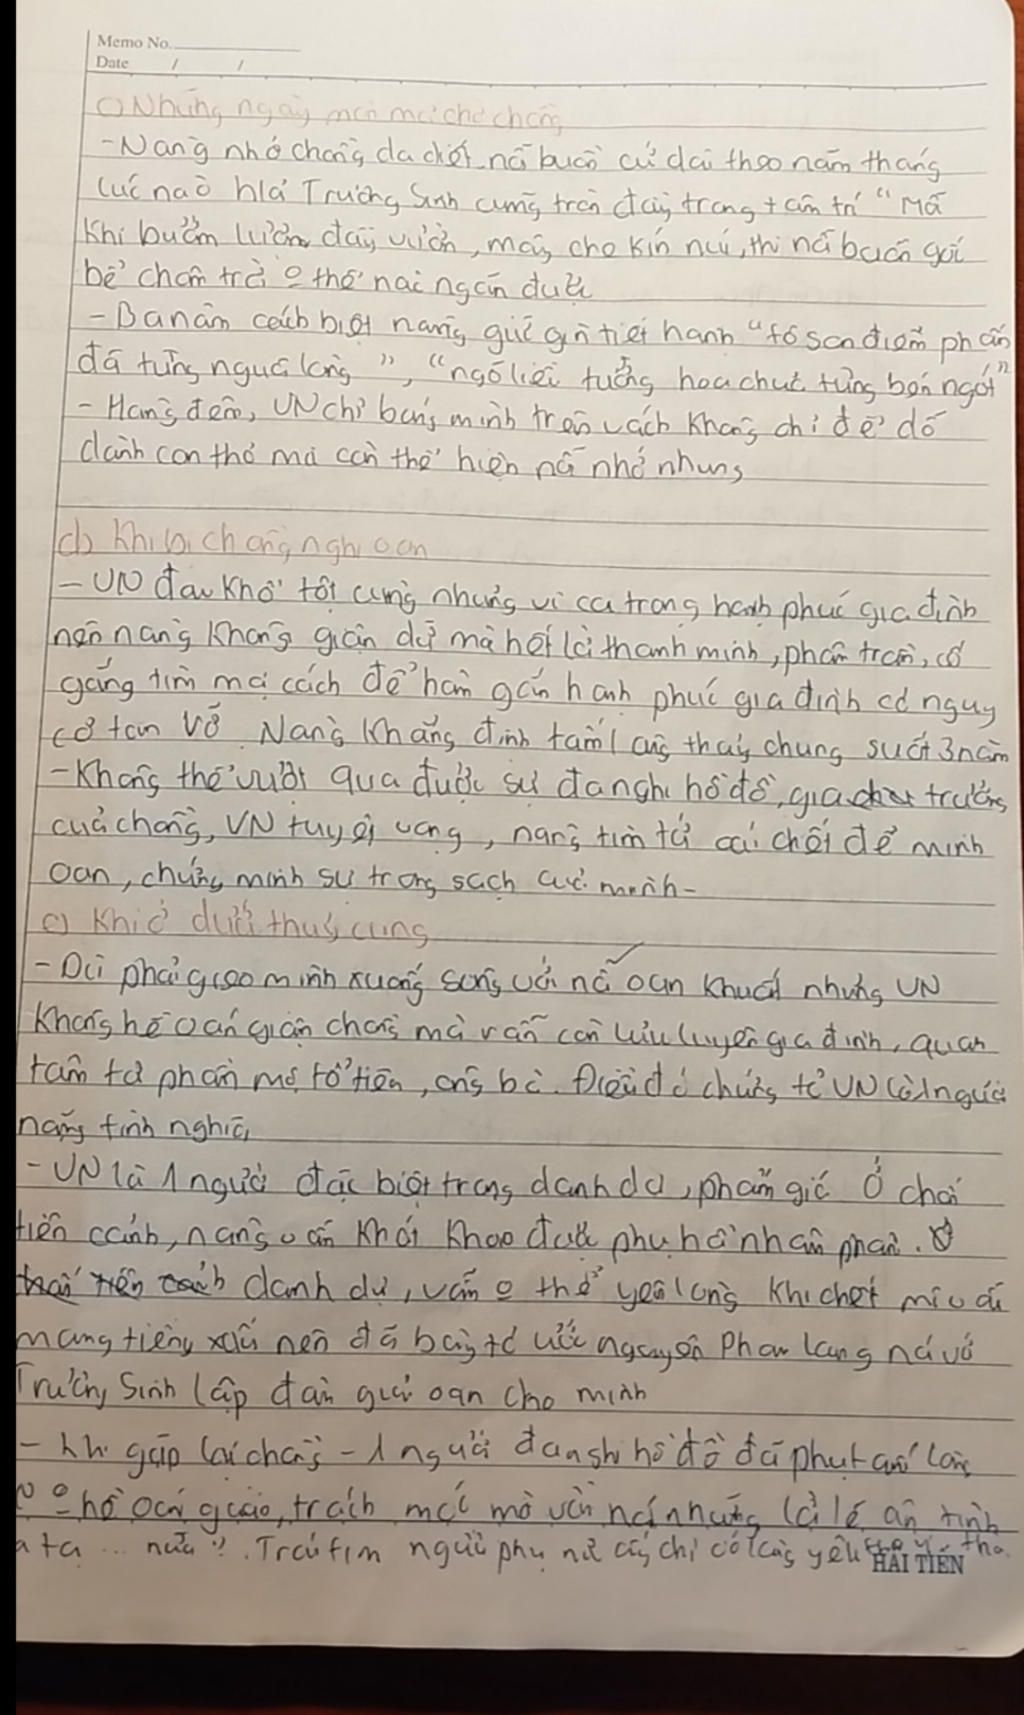 Memo No.
Date / /
c) Những ngày mòn mỏi chờ chồng
- Nàng nhớ chồng da diết, nỗi buồn cứ dài theo năm tháng
lúc nào h/ả Trương Sinh cũng tràn đầy trong tâm trí "Mỗi
khi bướm lượn đầy vườn, mây che kín núi, thì nỗi buồn góc
bể chân trời o thể nào ngăn được
- Ba năm cách biệt nàng giữ gìn tiết hạnh "tô son điểm phấn
đã từng nguôi lòng", "ngõ liễu tường hoa chưa từng bén gót"
- Hàng đêm, VN chỉ bóng mình trên vách không chỉ để dỗ
dành con thơ mà còn thể hiện nỗi nhớ nhung
d) Khi bị chồng nghi oan
- VN đau khổ tột cùng nhưng vì coi trọng hạnh phúc gia đình
nên nàng không giận dữ mà hết lời thanh minh, phân trần, cố
gắng tìm mọi cách để hàn gắn hạnh phúc gia đình có nguy
cơ tan vỡ. Nàng khẳng định tấm lòng thủy chung suốt 3 năm
- Không thể vượt qua được sự đa nghi hồ đồ, gia trưởng
của chồng, VN tuyệt vọng, nàng tìm tới cái chết để minh
oan, chứng minh sự trong sạch của mình -
c) Khi ở dưới thủy cung
- Dù phải gieo mình xuống sông với nỗi oan khuất nhưng VN
không hề oán giận chồng mà vẫn còn lưu luyến gia đình, quan
tâm tới phần mộ tổ tiên, ông bà. Điều đó chứng tỏ VN là 1 người
nặng tình nghĩa
- VN là 1 người đặc biệt trọng danh dự, phẩm giá. Ở chốn
tiên cảnh, nàng vẫn khát khao được phục hồi nhân phẩm.
danh dự, vẫn o thể yên lòng khi chết mà vẫn
mang tiếng xấu nên đã bày tỏ ước nguyện Phan Lang nói với
Trương Sinh lập đàn giải oan cho mình
- Khi gặp lại chồng - 1 người đa nghi hồ đồ đã phụt
o hề oán trách mà
ta ... nữa". Trái tim người phụ nữ ấy chỉ có lòng yêu
HẢI TIẾN